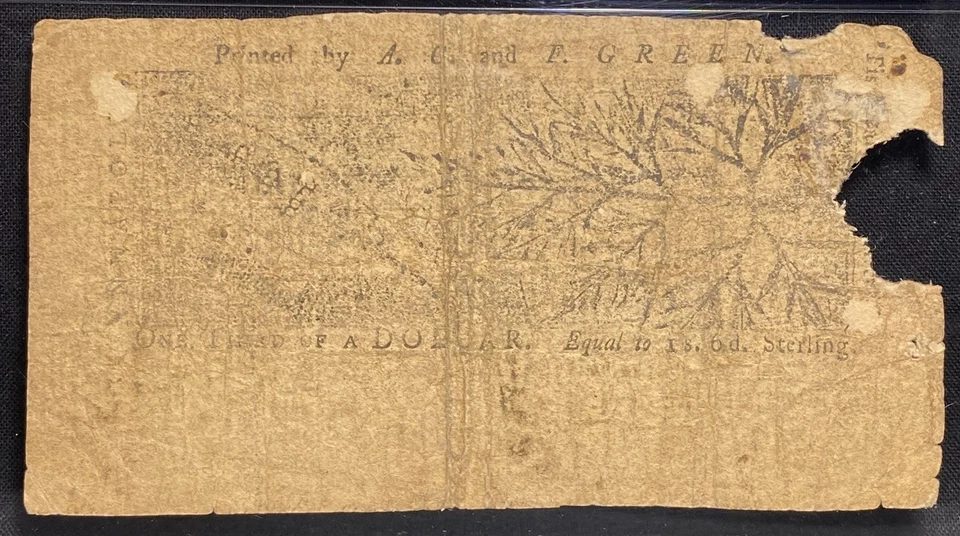 Printed by A. C. and F. GREEN.
ONE THIRD OF A DOLLAR. Equal to 1s. 6d. Sterling.